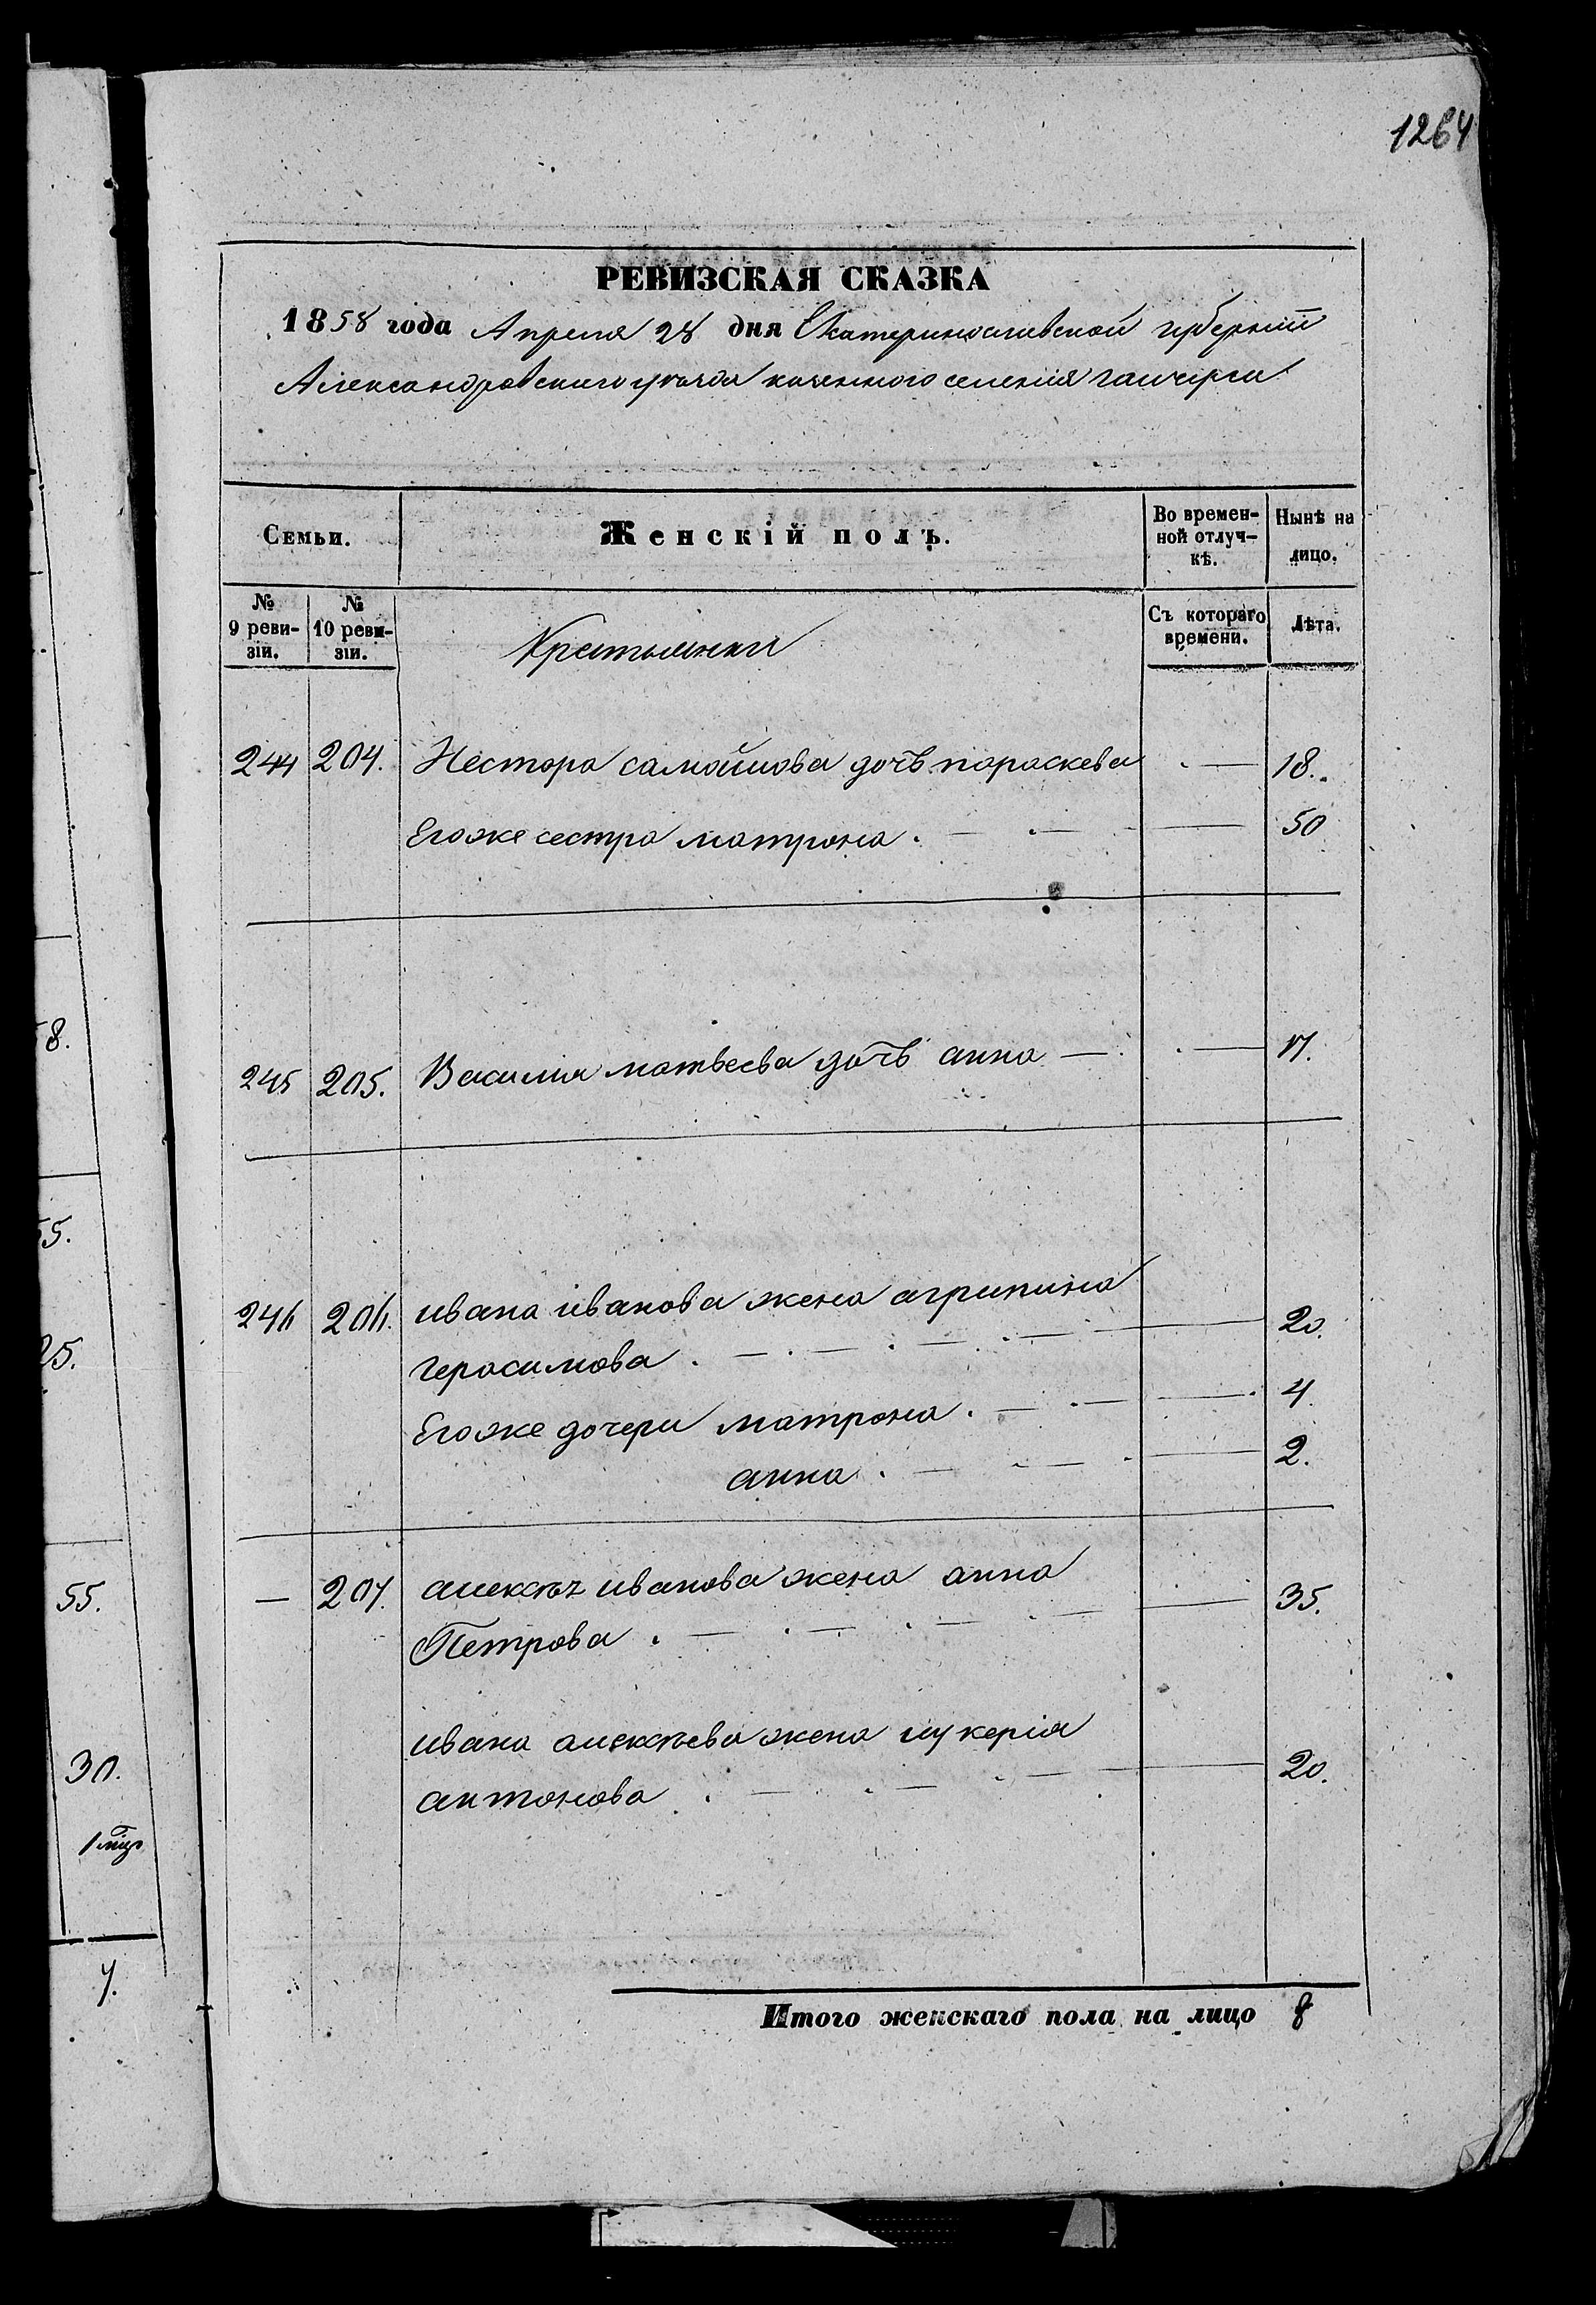 1264
РЕВИЗСКАЯ СКАЗКА
1858 года Апреля 28 дня Екатеринославской губерніи
Александровскаго уѣзда казеннаго селенія гайчерки
Семьи. Женскій полъ. Во времен- Нынѣ на
ной отлуч- лицо.
кѣ.
№ № Съ котораго Лѣта.
9 реви- 10 реви- времени.
зіи. зіи.
Крестьянки
244 204. Нестора самойлова дочь параскева 18.
Егоже сестра матрона. 50
245 205. Василия матвеева дочь анна 17.
246 206. ивана иванова жена агрипина
герасимова. 20.
Егоже дочери матрона. 4.
анна. 2.
— 207. алексѣя иванова жена анна
Петрова. 35.
ивана алексѣева жена лукерія
антонова. 20.
Итого женскаго пола на лицо 8
8.
55.
25.
55.
30.
1 мѣц
7.